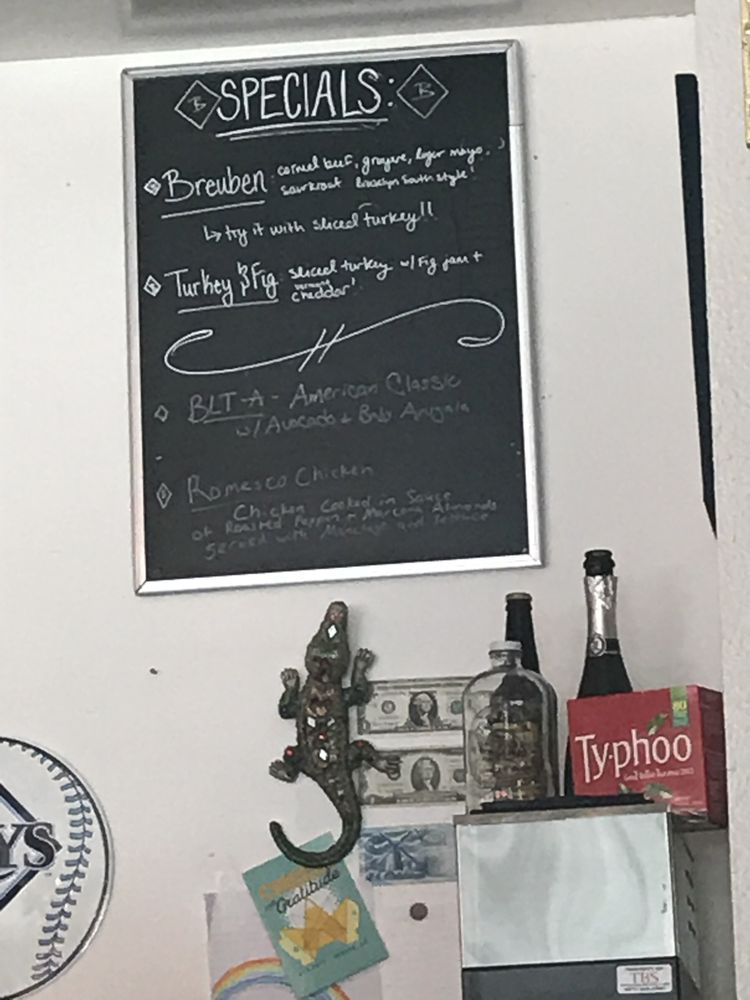 B SPECIALS: B
Breuben corned beef, gruyere, lager mayo,
sourkraut Brooklyn South style!
↳ try it with sliced turkey!!
Turkey & Fig sliced turkey w/ Fig jam +
vermont
cheddar!
BLT-A - American Classic
w/ Avocado + Baby Arugala
Romesco Chicken
Chicken Cooked in Sauce
of Roasted Peppers + Marcona Almonds
Served with Manchego and lettuce
Ty·phoo
80
YS
Gratitude
TBS